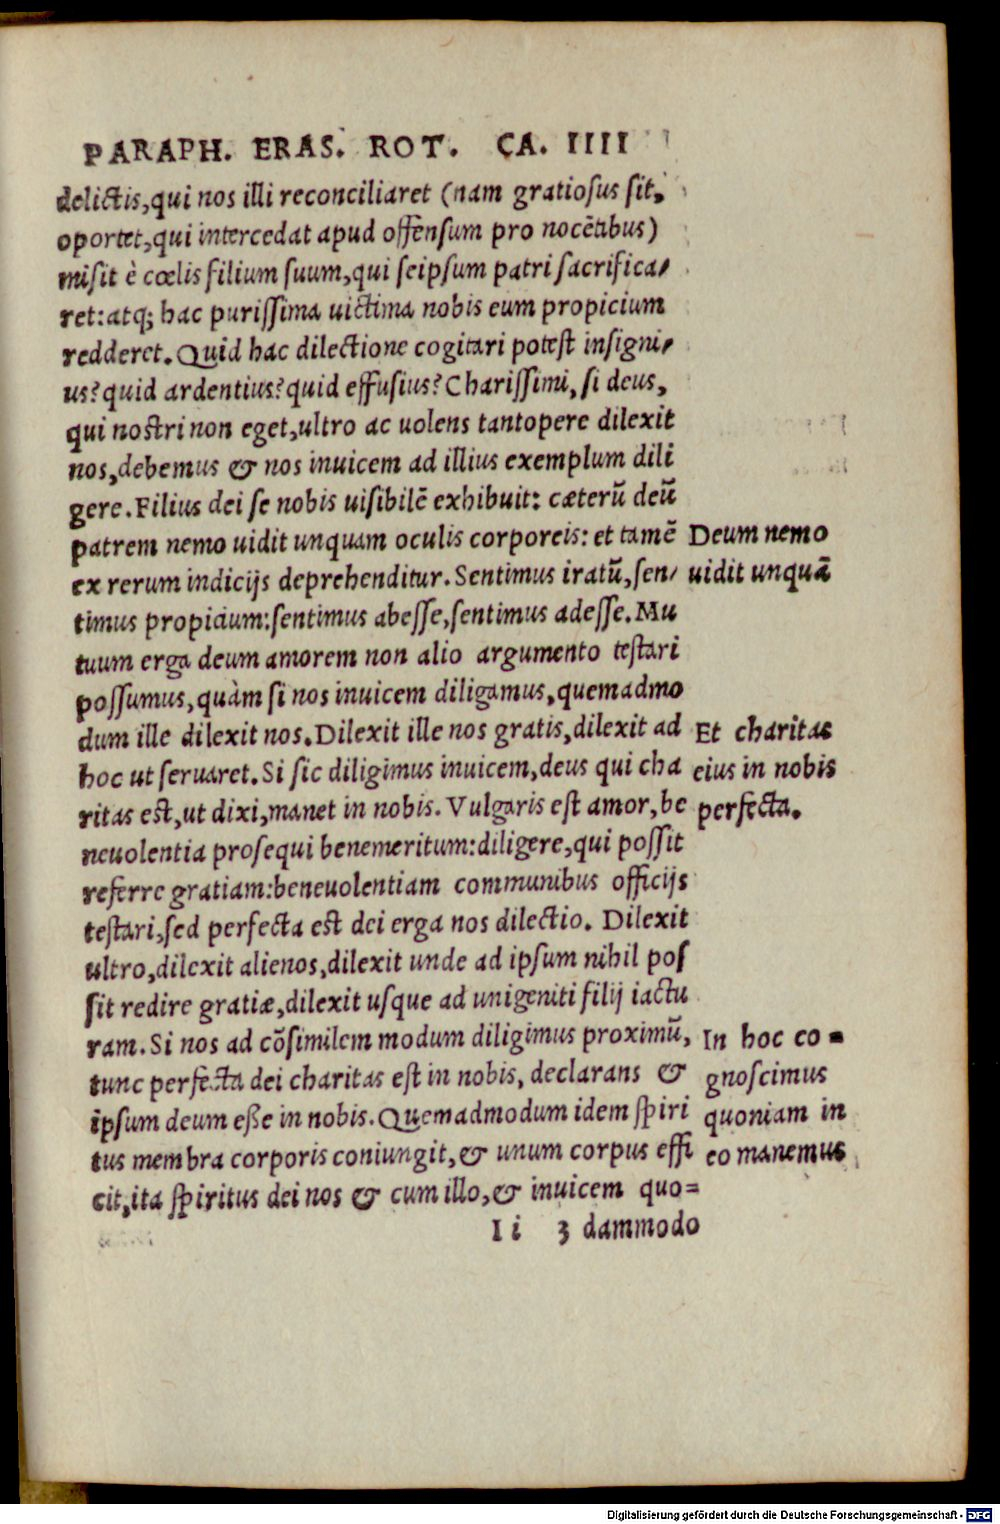 PARAPH. ERAS. ROT. CA. IIII
delictis,qui nos illi reconciliaret (nam gratiosus sit,
oportet,qui intercedat apud offensum pro nocētibus)
misit è cœlis filium suum,qui seipsum patri sacrifica/
ret:atq; hac purissima uictima nobis eum propicium
redderet. Quid hac dilectione cogitari potest insigni/
us? quid ardentius? quid effusius? Charissimi, si deus,
qui nostri non eget,ultro ac uolens tantopere dilexit
nos,debemus & nos inuicem ad illius exemplum dili
gere. Filius dei se nobis uisibilē exhibuit: cæterū deū
patrem nemo uidit unquam oculis corporeis: et tamē
ex rerum indicijs deprehenditur. Sentimus iratū,sen/
timus propicium:sentimus abesse,sentimus adesse. Mu
tuum erga deum amorem non alio argumento testari
possumus,quàm si nos inuicem diligamus,quemadmo
dum ille dilexit nos. Dilexit ille nos gratis,dilexit ad
hoc ut seruaret. Si sic diligimus inuicem,deus qui cha
ritas est,ut dixi,manet in nobis. Vulgaris est amor,be
neuolentia prosequi benemeritum:diligere,qui possit
referre gratiam:beneuolentiam communibus officijs
testari,sed perfecta est dei erga nos dilectio. Dilexit
ultro,dilexit alienos,dilexit unde ad ipsum nihil pos
sit redire gratiæ,dilexit usque ad unigeniti filij iactu
ram. Si nos ad cōsimilem modum diligimus proximū,
tunc perfecta dei charitas est in nobis, declarans &
ipsum deum eße in nobis. Quemadmodum idem spiri
tus membra corporis coniungit,& unum corpus effi
cit,ita spiritus dei nos & cum illo,& inuicem quo=
Ii 3 dammodo
Deum nemo
uidit unquā
Et charitas
eius in nobis
perfecta.
In hoc co=
gnoscimus
quoniam in
eo manemus
Digitalisierung gefördert durch die Deutsche Forschungsgemeinschaft - DFG